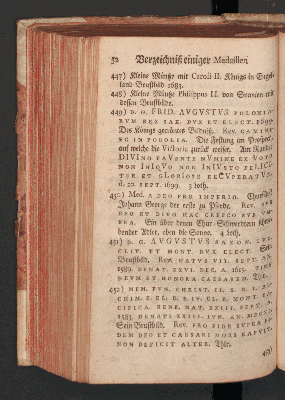 52 Verzeichniß einiger Medaillen
447) Kleine Müntze mit Caroli II. Königs in Engel-
land Brustbild 1683.
448) Kleine Müntze Philippus II. von Spanien mit
dessen Brustbilde.
449) D. G. FRID. AUGUSTUS POLONIA-
RUM REX SAX. DUX ET ELECT. 1699.
Des Königs gecröntes Bildniß. Rev. CAMINE
IN PODOLIA. Die Festung im Prospect,
auf welche die Victorie zurück weiset. Am Rande:
DIVINO FAVENTE NUMINE EX VOTO
NON INIQUO NOR INIUSTO FELICI-
TER ET GLORIOSE RECUPERATUM.
d. 22. sept. 1699. 3 loth.
450) Med. A DEO PRO IMPERIO. Churfürst
Johann George der erste zu Pferde. Rev.
DEO ET DIVO HAC CRESCO SUB UM-
BRA. Ein über einen Chur-Schwerdtern
bender Adler, oben die Sonne. 4 loth.
451) D. G. AUGUSTUS SAXON.
CLIV. ET MONT. DUX ELECT.
Brustbild. Rev. NATUS VII. SEPT. AN.
1589. DENAT. XXVI. DEC. A. 1615.
DEUM ET HONORA CAESAREM. Thlr.
452) MEM. FUN. CHRIST. II. S. R. I. A
CHIM. E. EL. B. F. IV. CL. E. MONT.
CIFICA. BENE. NAT. XXIII. SEPT. A.
1583. DENATI XXIII. IUN. AN. MDCXI
Sein Brustbild. Rev. PRO FIDE SUPRA FI-
DEM DEO ET CAESARI MORS RAPUIT.
NON DEFICIT ALTER. Thlr.